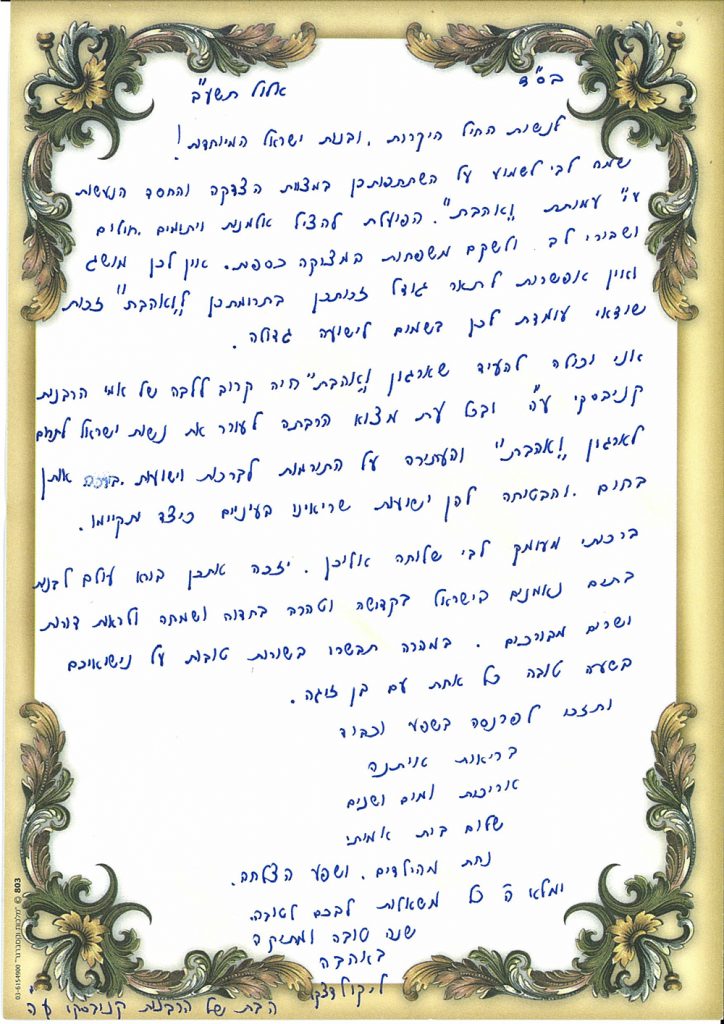 בס"ד
אלול תשע"ב
לנשות החיל היקרות, ובנות ישראל המיוחדות!
שמח לבי לשמוע על השתתפותכן במצוות הצדקה והחסד הנעשות
ע"י עמותת "ואהבת". הפועלת להציל אלמנות ויתומים, חולים
ושבורי לב ולשקם משפחות במצוקה כספית. אין לכן מושג
ואין אפשרות לתאר גודל זכותכן בתרומתכן ל"ואהבת" זכות
שודאי עומדת לכן בשמים לישועה גדולה.
אני יכולה להעיד שארגון "ואהבת" היה קרוב ללבה של אמי הרבנית
קניבסקי ע"ה ובכל עת מצוא הרבתה לעורר את נשות ישראל לתרום
לארגון "ואהבת" והעתירה על התורמות לברכות וישועות. ברכה אותן
בחום, והבטיחה להן ישועות שראינו בעינינו כיצד מתקיימו.
ברכתי מעומק לבי שלוחה אליכן. יזכה אתכן בורא עולם לבנות
בתים נאמנים בישראל בקדושה וטהרה בחדוה ושמחה ולראות דורות
ישרים מבורכים. במהרה תבשרו בשורות טובות על נישואיכם
בשעה טובה כל אחת עם בן זוגה.
ותזכו לפרנסה בשפע וכבוד
בריאות איתנה
אריכות ימים ושנים
שלום בית אמיתי
נחת מהילדים, ושפע הצלחה.
ימלא ה' כל משאלות לבכם לטובה.
שנה טובה ומתוקה
באהבה
ל. קולדצקי
הבת של הרבנית קניבסקי ע"ה
803 ©
03-6154900